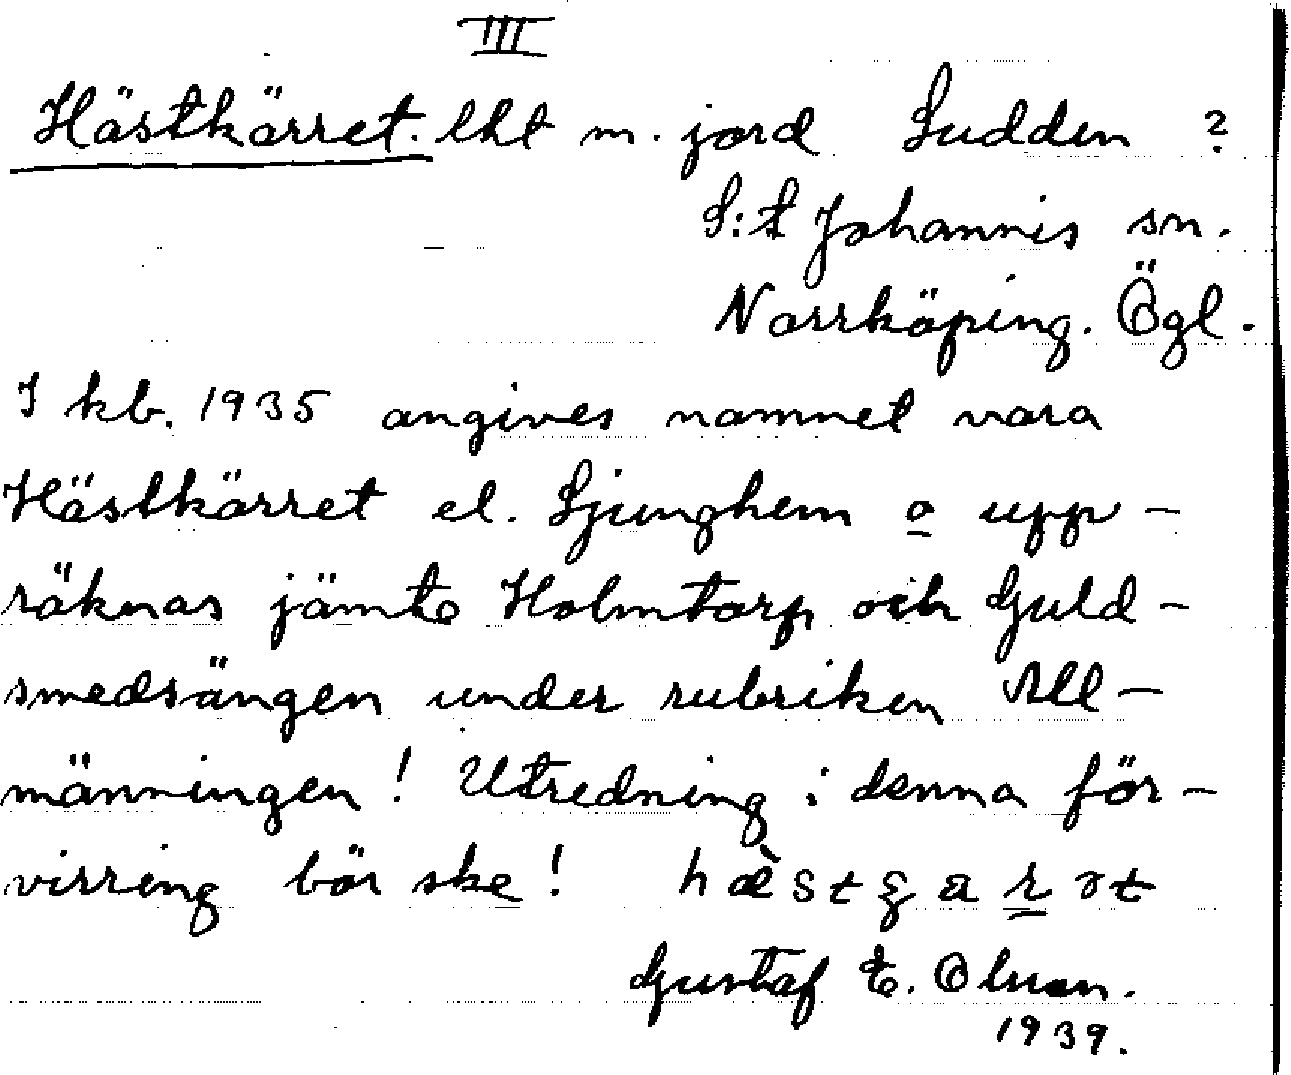 III
Hästkärret. lht m. jord Sudden ?
S:t Johannis sn.
Norrköping. Ögl.
I kb. 1935 angives namnet vara
Hästkärret el. Ljunghem o upp-
räknas jämte Holmtorp och Guld-
smedsängen under rubriken All-
männingen! Utredning i denna för-
virring bör ske!
Gustaf E. Olsson.
1939.